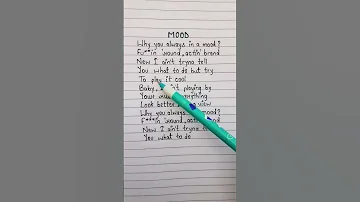 MOOD
Why you always in a mood?
F**in 'wound, actin' brand
Now I ain't tryna tell
You what to do but try
To play it cool
Baby, playing by
Your everything
Look better view
Why you always mood?
F***in 'wound, actin brand
Now I ain't tryna
You what to do